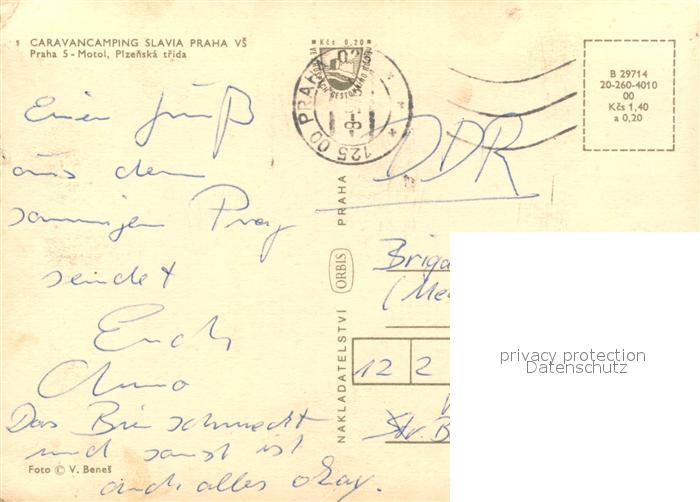 1 CARAVANCAMPING SLAVIA PRAHA VŠ
Praha 5 - Motol, Plzeňská třída
Einen Gruß
aus dem
sonnigen Prag
sendet
Euch
Das Bier schmeckt
und sonst ist
auch alles okay.
Foto © V. Beneš
Kčs 0,20
125 00 PRAHA
NAKLADATELSTVÍ ORBIS PRAHA
B 29714
20-260-4010
00
Kčs 1,40
a 0,20
DDR
Briga
(Me
12 2
Str. B
privacy protection
Datenschutz